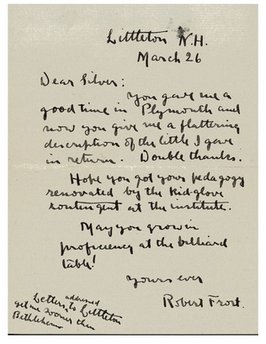 Littleton N.H.
March 26
Dear Silver:
You gave me a
good time in Plymouth and
now you give me a flattering
description of the little I gave
in return. Double thanks.
Hope you got your pedagogy
renovated by the Kid glove
contingent at the institute.
May you grow in
proficiency at the billiard
table!
Yours ever
Robert Frost.
Letters addressed
to Littleton
get me sooner than
Bethlehem